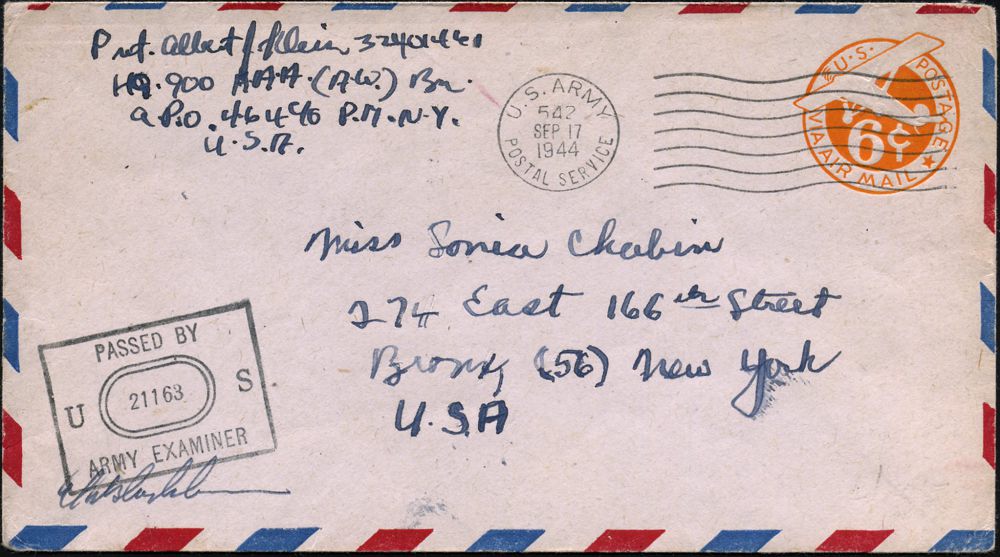 Pvt. Albert J. Klein 32401461
HQ. 900 A.A.A. (A.W.) Bn.
A.P.O. 464 c/o P.M. N.Y.
U.S.A.
U.S. ARMY
542
SEP 17
1944
POSTAL SERVICE
U.S. POSTAGE
6¢
VIA AIR MAIL
Miss Sonia Chabin
274 East 166th Street
Bronx, (56) New York
U.S.A
PASSED BY
U 21163 S
ARMY EXAMINER